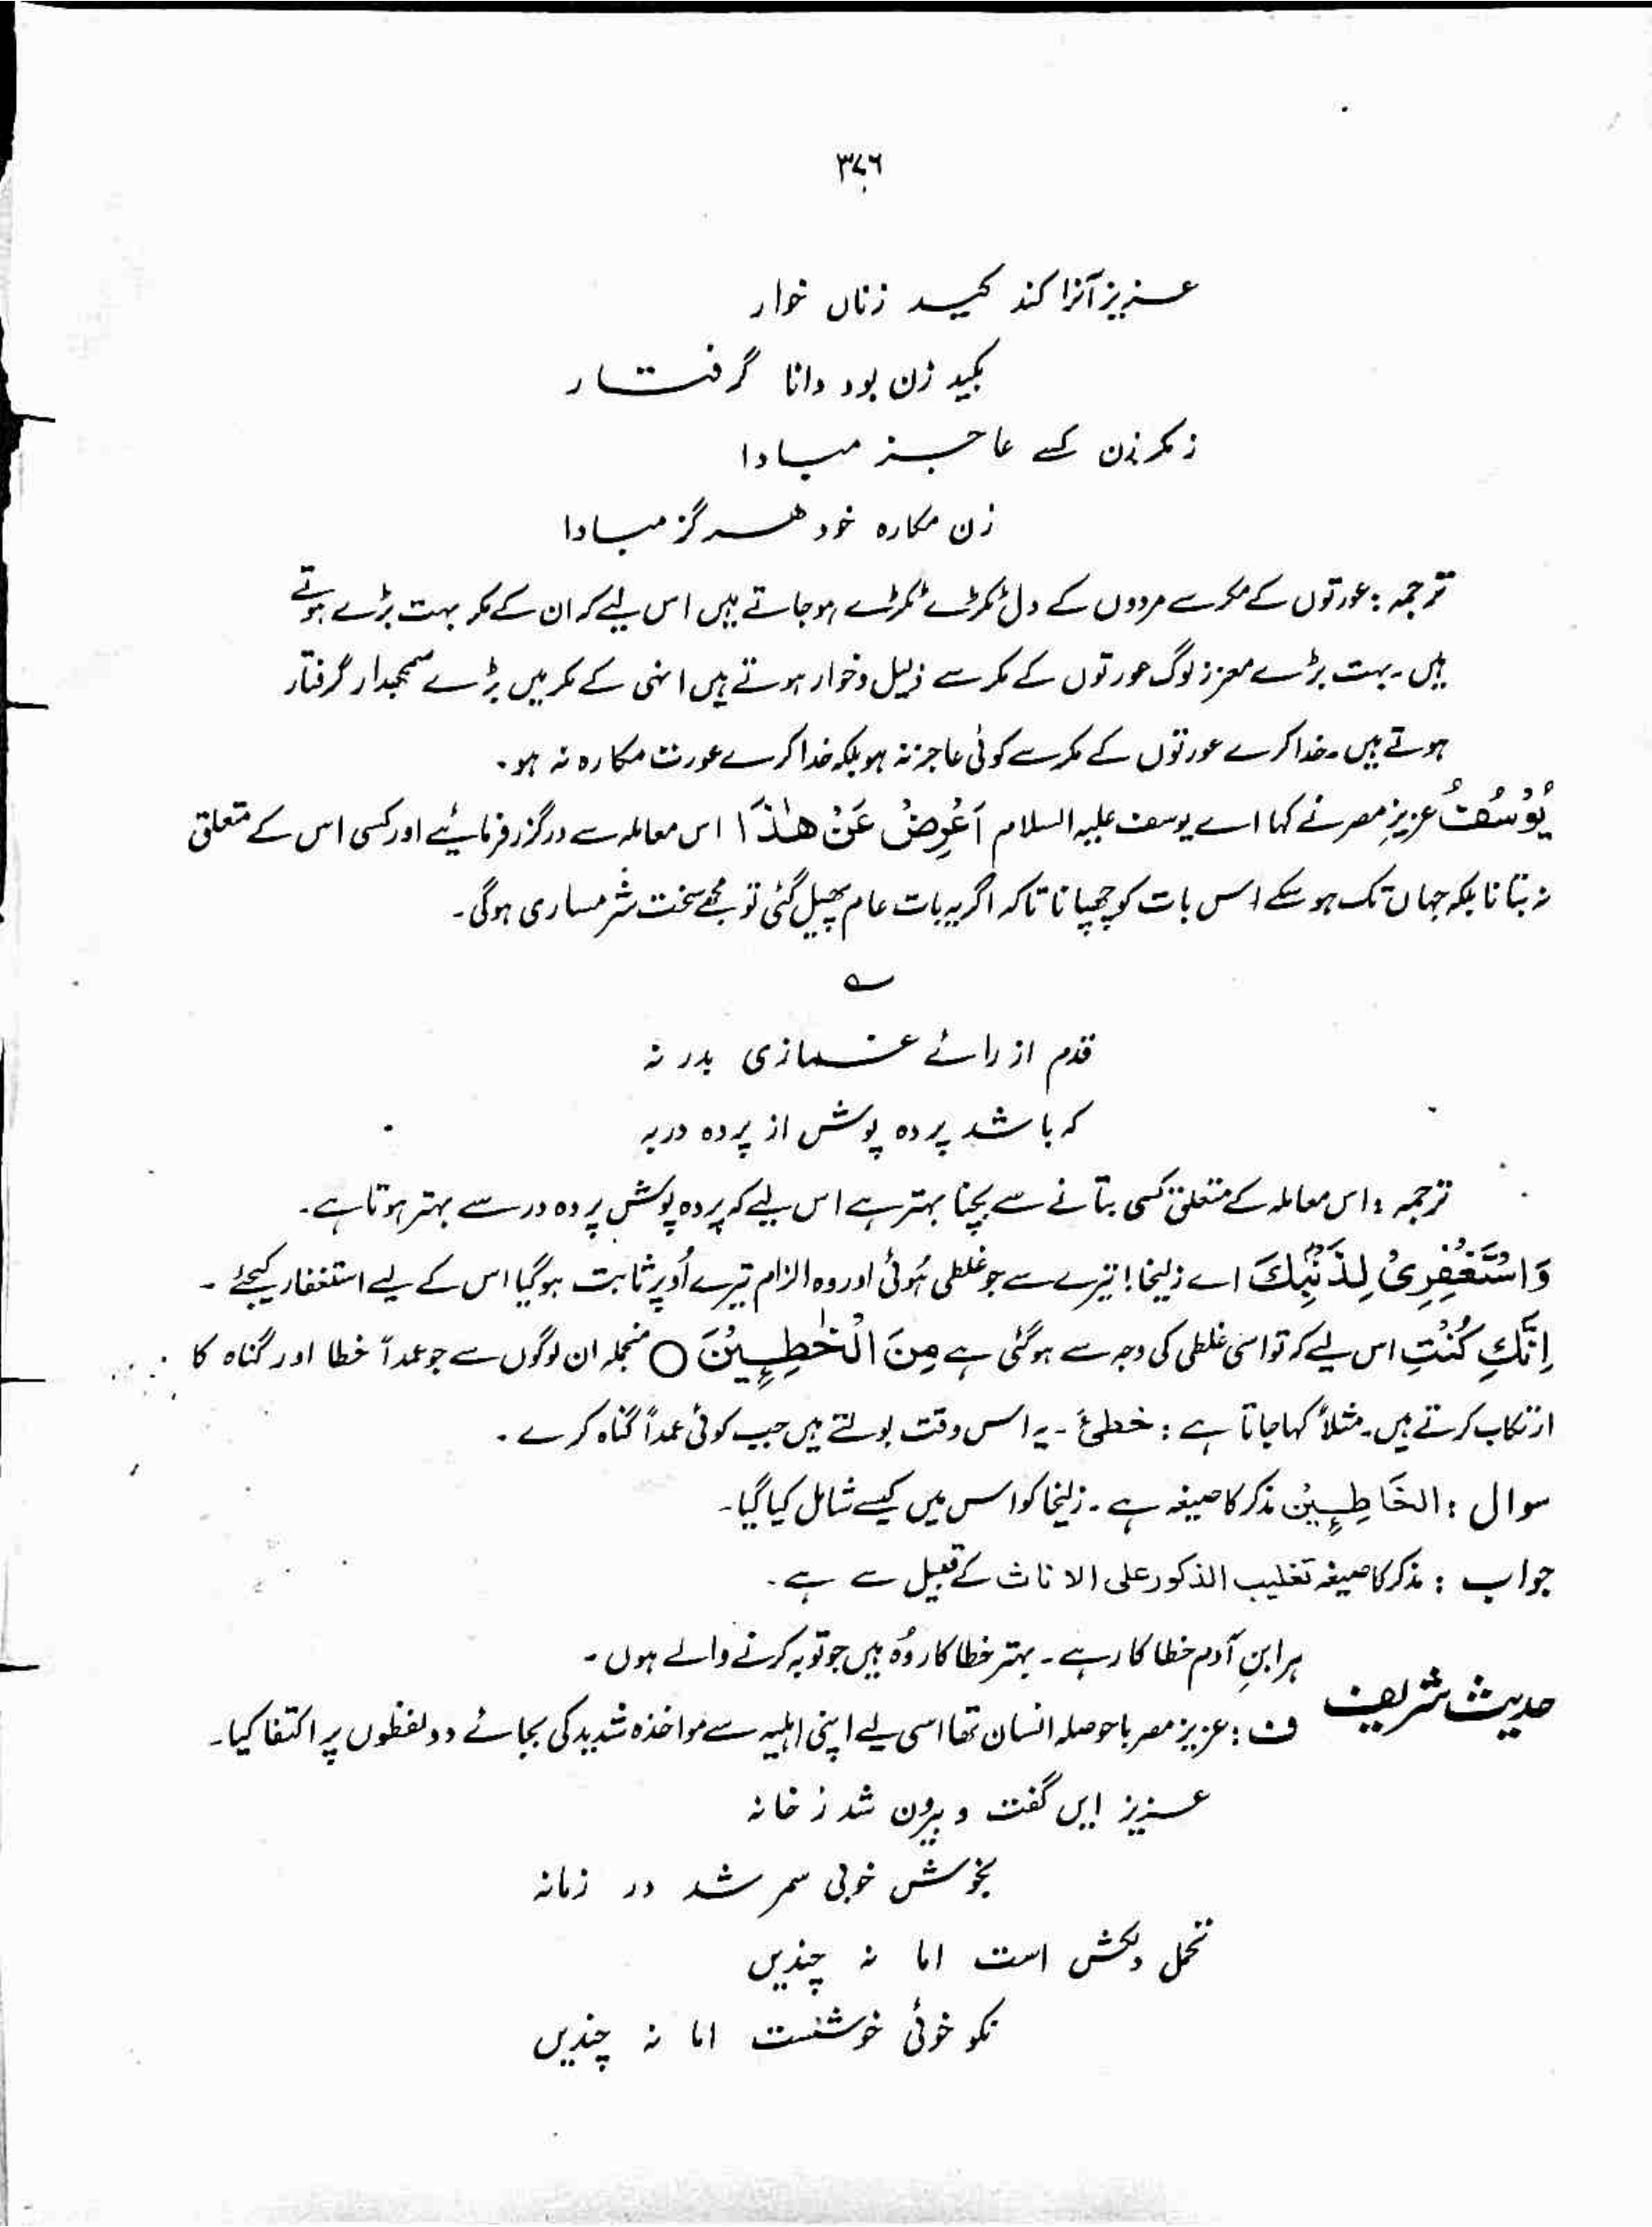 ۳۷۶
عزیز آنرا کند کید زناں خوار
بکید زن بود دانا گرفتار
ز مکر زن کسے عاجز مبادا
زن مکارہ خود ہرگز مبادا
ترجمہ : عورتوں کے مکر سے مردوں کے دل ٹکڑے ٹکڑے ہو جاتے ہیں اس لیے کہ ان کے مکر بہت بڑے ہوتے
ہیں۔ بہت بڑے معزز لوگ عورتوں کے مکر سے ذلیل و خوار ہوتے ہیں انہی کے مکر میں بڑے سمجھدار گرفتار
ہوتے ہیں۔ خدا کرے عورتوں کے مکر سے کوئی عاجز نہ ہو بلکہ خدا کرے عورت مکارہ نہ ہو۔
یُوْسُفُ عزیزِ مصر نے کہا اے یوسف علیہ السلام اَعْرِضْ عَنْ هٰذَا اس معاملہ سے درگزر فرمائیے اور کسی اس کے متعلق
نہ بتانا بلکہ جہاں تک ہو سکے اس بات کو چھپانا تاکہ اگر یہ بات عام پھیل گئی تو مجھے سخت شرمساری ہوگی۔
؎
قدم از رائے غمازی بدر نہ
کہ باشد پردہ پوش از پردہ در بہ
ترجمہ : اس معاملہ کے متعلق کسی بتانے سے بچنا بہتر ہے اس لیے کہ پردہ پوش پردہ در سے بہتر ہوتا ہے۔
وَاسْتَغْفِرِیْ لِذَنْۢبِكَ اے زلیخا! تیرے سے جو غلطی ہُوئی اور وہ الزام تیرے اُوپر ثابت ہو گیا اس کے لیے استغفار کیجئے۔
اِنَّكِ كُنْتِ اس لیے کہ تو اسی غلطی کی وجہ سے ہو گئی ہے مِنَ الْخٰطِـِٕیْنَ ○ منجملہ ان لوگوں سے جو عمداً خطا اور گناہ کا
ارتکاب کرتے ہیں۔ مثلاً کہا جاتا ہے : خطئ۔ یہ اس وقت بولتے ہیں جب کوئی عمداً گناہ کرے۔
سوال : الخَاطِـِٕیْن مذکر کا صیغہ ہے۔ زلیخا کو اس میں کیسے شامل کیا گیا۔
جواب : مذکر کا صیغہ تغلیب الذکور علی الاناث کے قبیل سے ہے۔
ہر ابنِ آدم خطا کار ہے۔ بہتر خطا کار وُہ ہیں جو توبہ کرنے والے ہوں۔
حدیث شریف
ف : عزیز مصر با حوصلہ انسان تھا اسی لیے اپنی اہلیہ سے مواخذہ شدید کی بجائے دو لفظوں پر اکتفا کیا۔
عزیز ایں گفت و بیرون شد ز خانہ
بخوش خوئی سمر شد در زمانہ
تحمل دلکش است اما نہ چندیں
نکو خوئی خوشست اما نہ چندیں